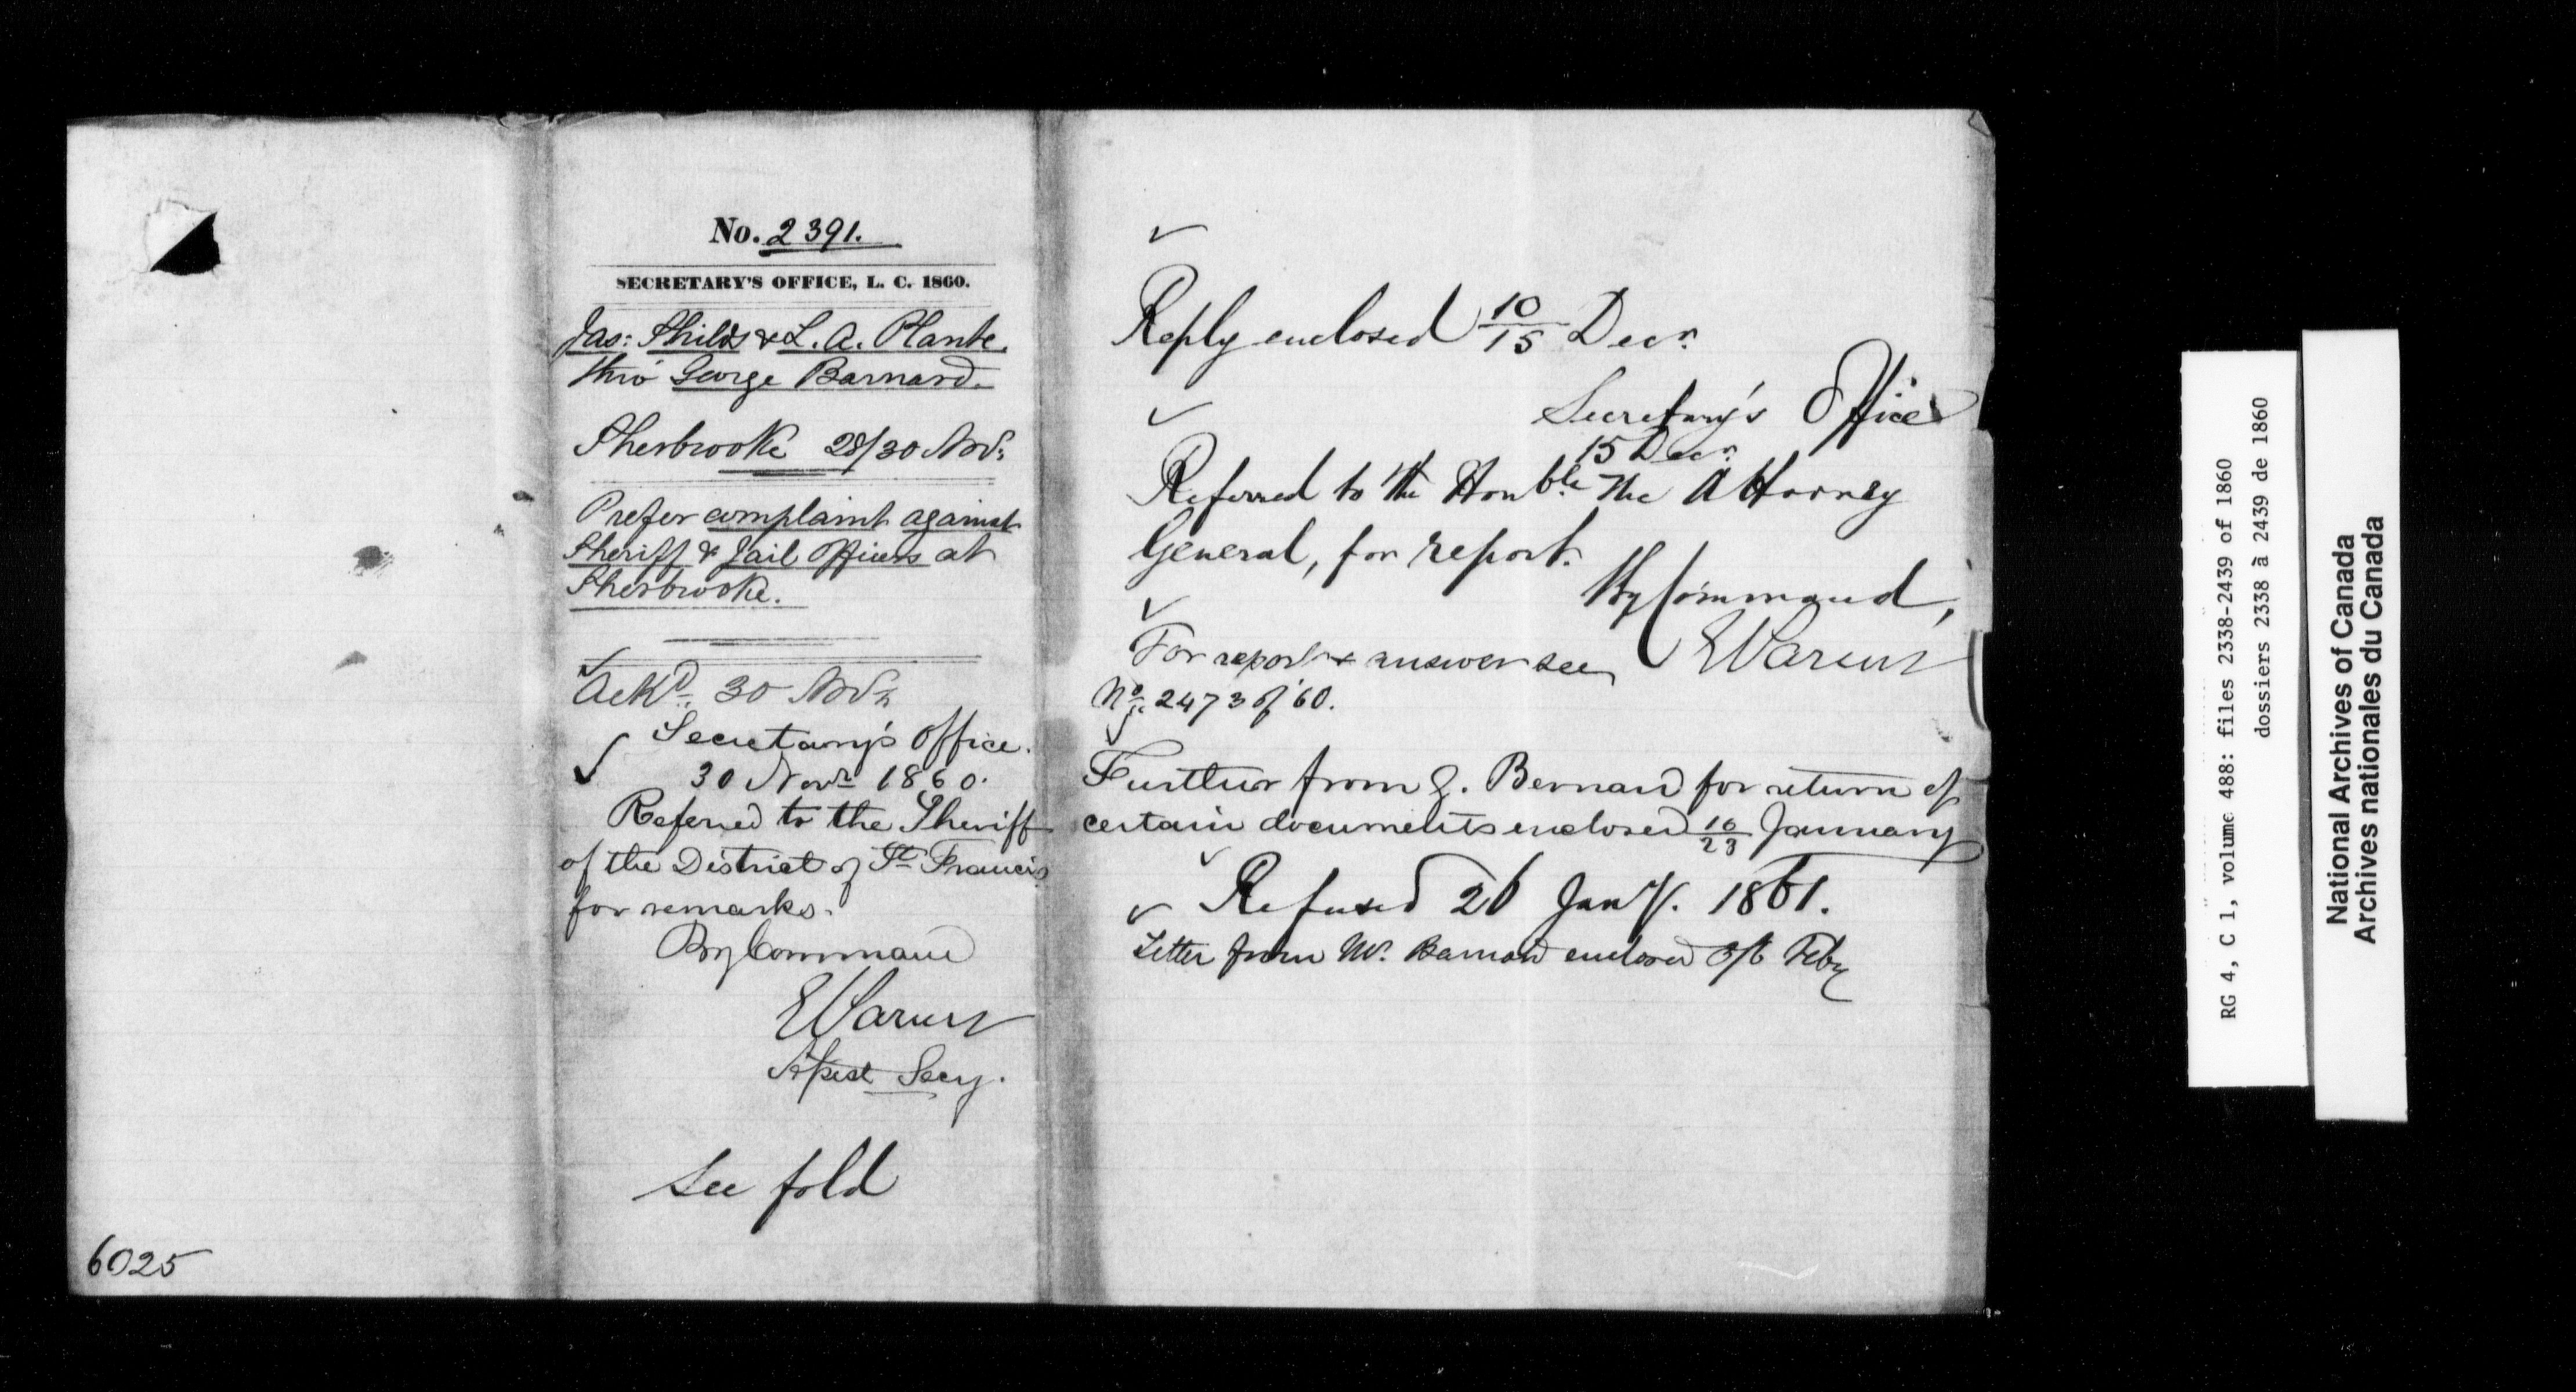 No. 2391.
SECRETARY'S OFFICE, L. C. 1860.
Jas: Shilds & L. A. Plante,
thro' George Barnard.
Sherbrooke 28/30 Novr:
Prefer complaint against
Sheriff & Jail Officers at
Sherbrooke.
Ackd. 30 Novr
Secretary's Office.
30 Novr 1860.
Referred to the Sheriff
of the District of St Francis
for remarks.
By Command
Asist Secy.
See fold
6025
Reply enclosed 10/15 Decr.
Secretary's Office
15 Decr.
Referred to the Honble. the Attorney
General, for report.
By Command,
For report & answer see
No. 2473 of '60.
Further from G. Bernard for return of
certain documents enclosed 16/23 January
Refused 26 Jany. 1861.
Letter from Mr. Barnard enclosed 5/6 Feby
RG 4, C 1, volume 488: files 2338-2439 of 1860
dossiers 2338 à 2439 de 1860
National Archives of Canada
Archives nationales du Canada